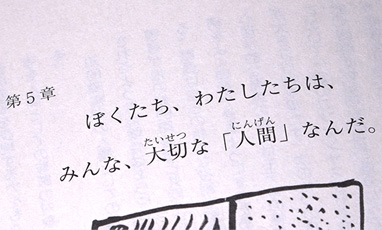 第5章
ぼくたち、わたしたちは、
たいせつ にんげん
みんな、大切な「人間」なんだ。